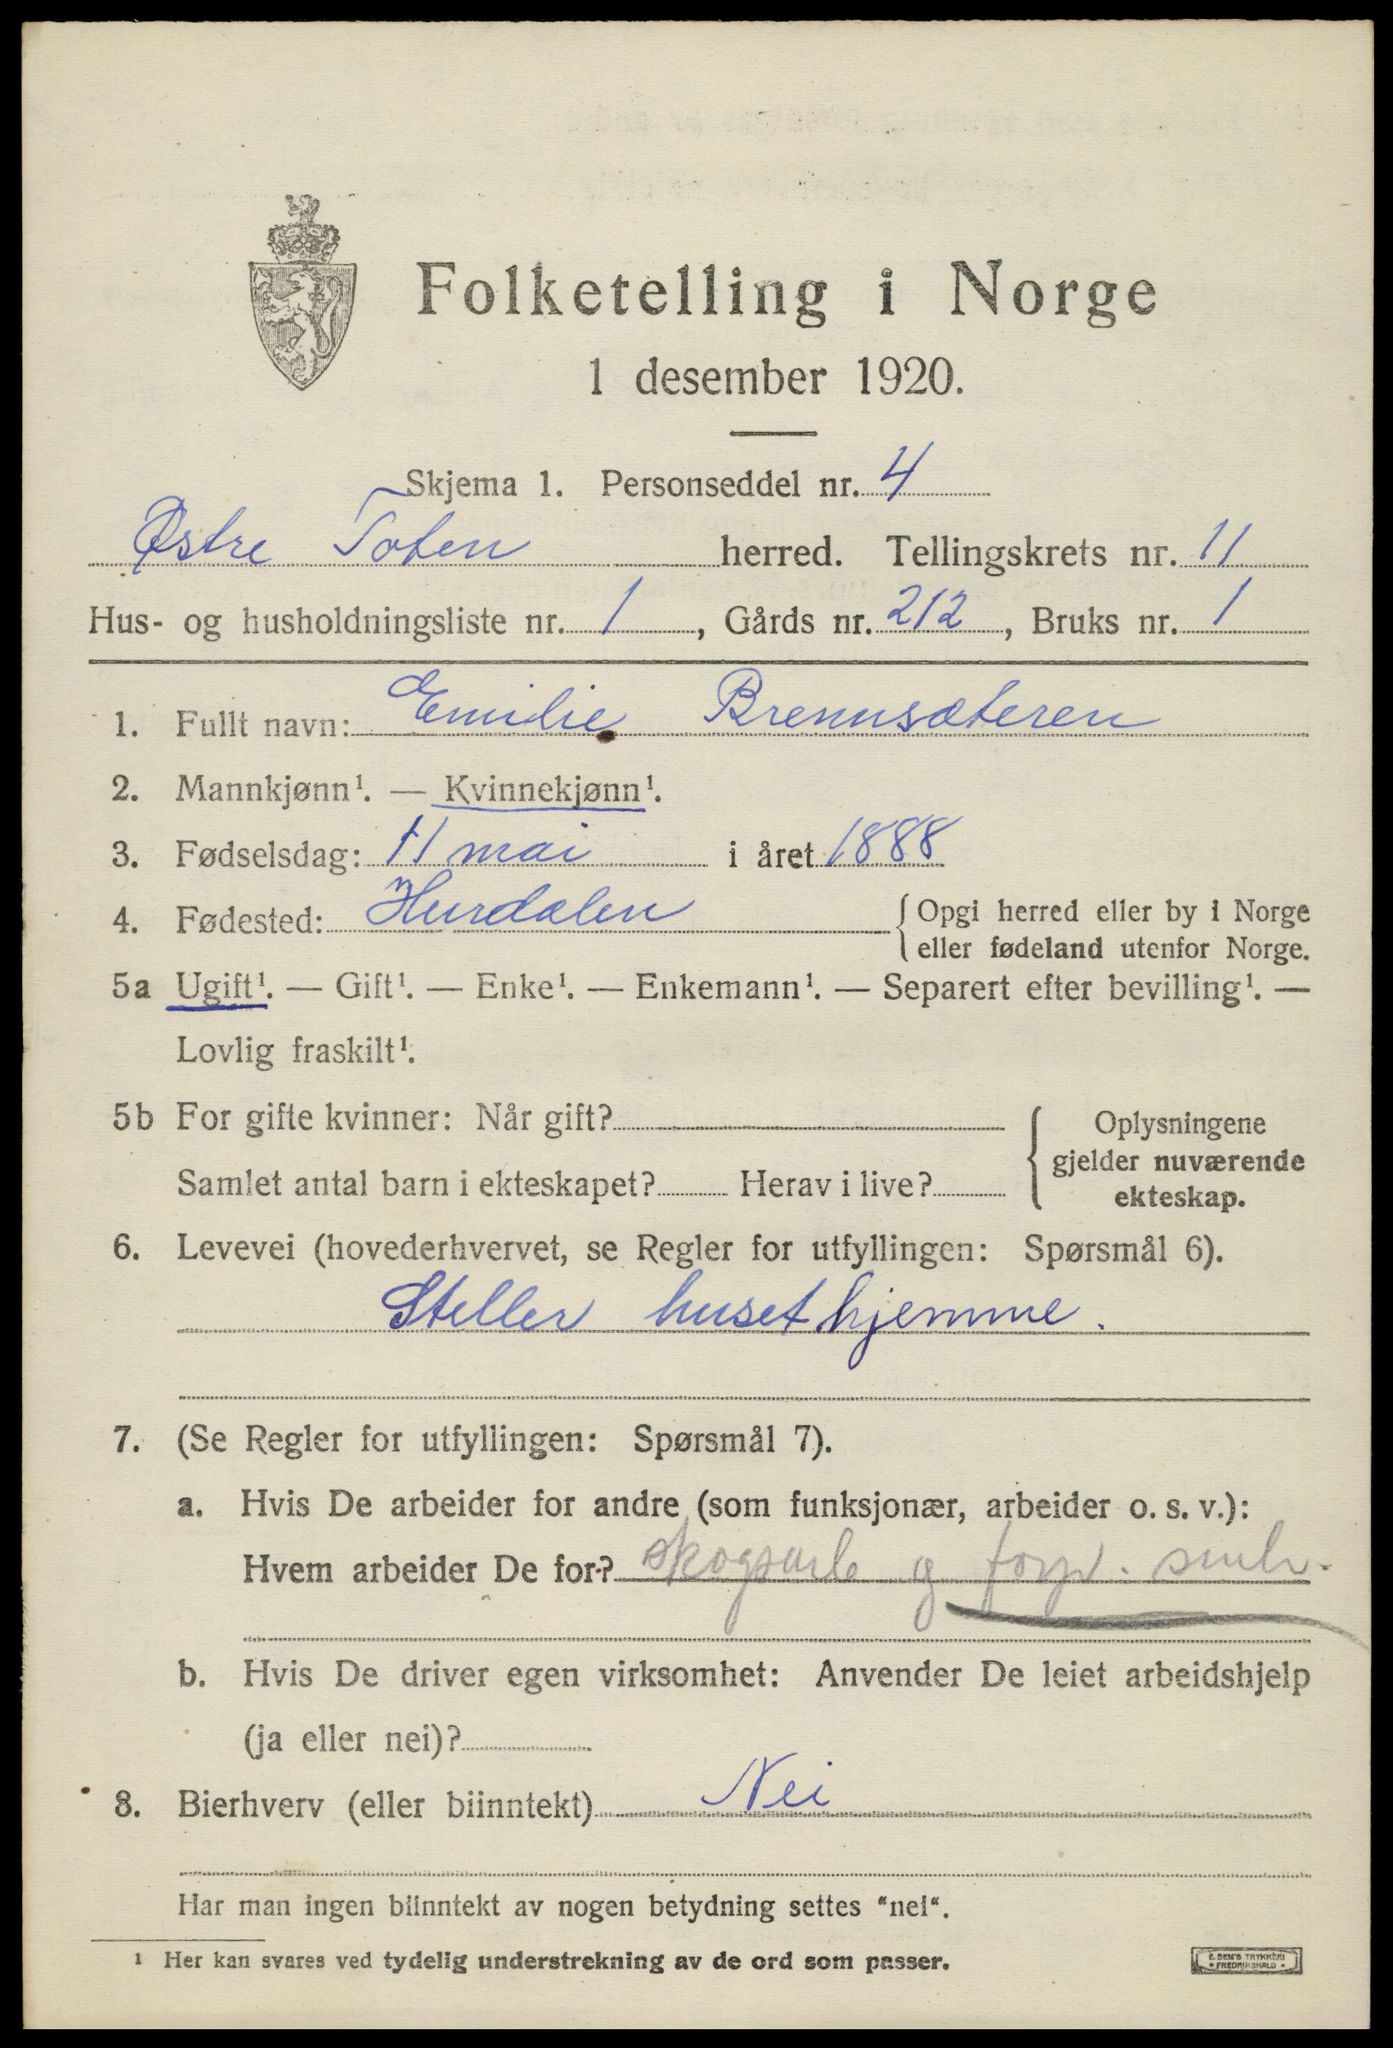 Folketelling i Norge
1 desember 1920.
Skjema 1. Personseddel nr. 4
Østre Toten herred. Tellingskrets nr. 11
Hus- og husholdningsliste nr. 1, Gårds nr. 212, Bruks nr. 1
1. Fullt navn: Emilie Brennsæteren
2. Mannkjønn¹. — Kvinnekjønn¹.
3. Fødselsdag: 11 mai i året 1888
4. Fødested: Hurdalen { Opgi herred eller by i Norge
eller fødeland utenfor Norge.
5a Ugift¹. — Gift¹. — Enke¹. — Enkemann¹. — Separert efter bevilling¹. —
Lovlig fraskilt¹.
5b For gifte kvinner: Når gift? { Oplysningene
gjelder nuværende
Samlet antal barn i ekteskapet? Herav i live?
ekteskap.
6. Levevei (hovederhvervet, se Regler for utfyllingen: Spørsmål 6).
Steller huset hjemme.
7. (Se Regler for utfyllingen: Spørsmål 7).
a. Hvis De arbeider for andre (som funksjonær, arbeider o. s. v.):
Hvem arbeider De for? skogsarb
b. Hvis De driver egen virksomhet: Anvender De leiet arbeidshjelp
(ja eller nei)?
8. Bierhverv (eller biinntekt) Nei
Har man ingen biinntekt av nogen betydning settes "nei".
¹ Her kan svares ved tydelig understrekning av de ord som passer.
E. SEM'S TRYKKERI
• FREDRIKSHALD •